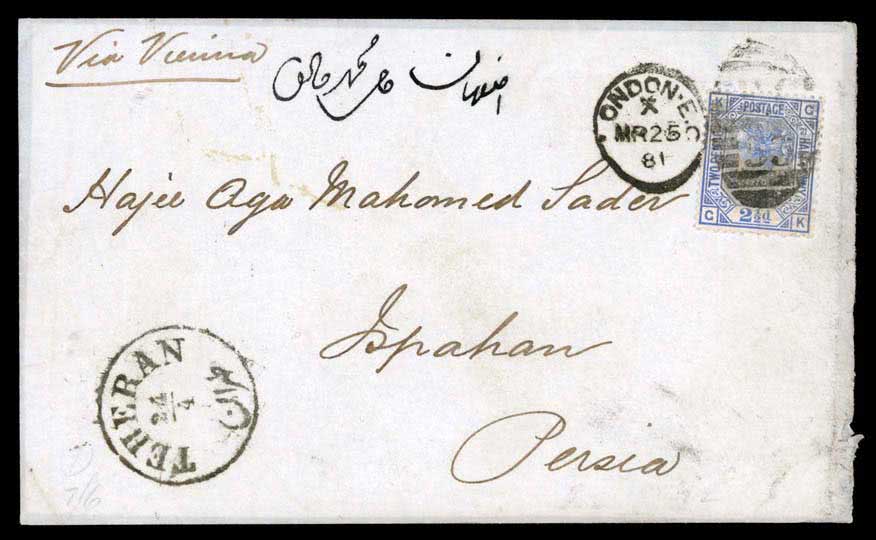 Via Vienna
اصفهان
حاجی محمد صادق
LONDON·E.C
X
MR25
81
K G
POSTAGE
TWO PENCE
G 2½d K
Hajee Aga Mahomed Sader
Ispahan
Persia
TEHERAN
24/4
7/6